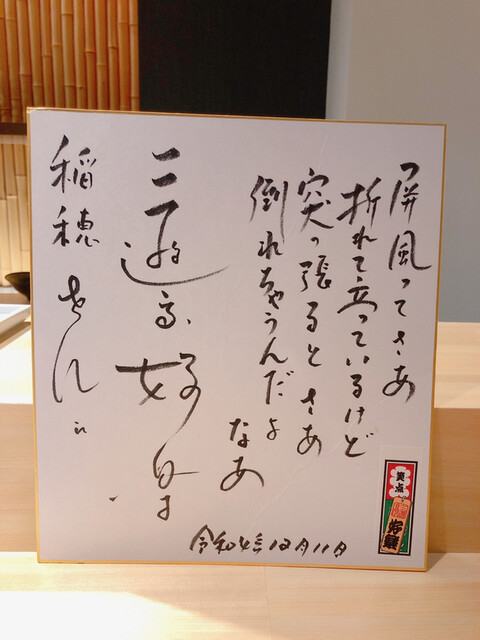 屏風ってさあ
折れて立っているけど
突っ張るとさあ
倒れちゃうんだよ
なあ
三遊亭好楽
稲穂さん
令和4年12月11日
笑点
好楽